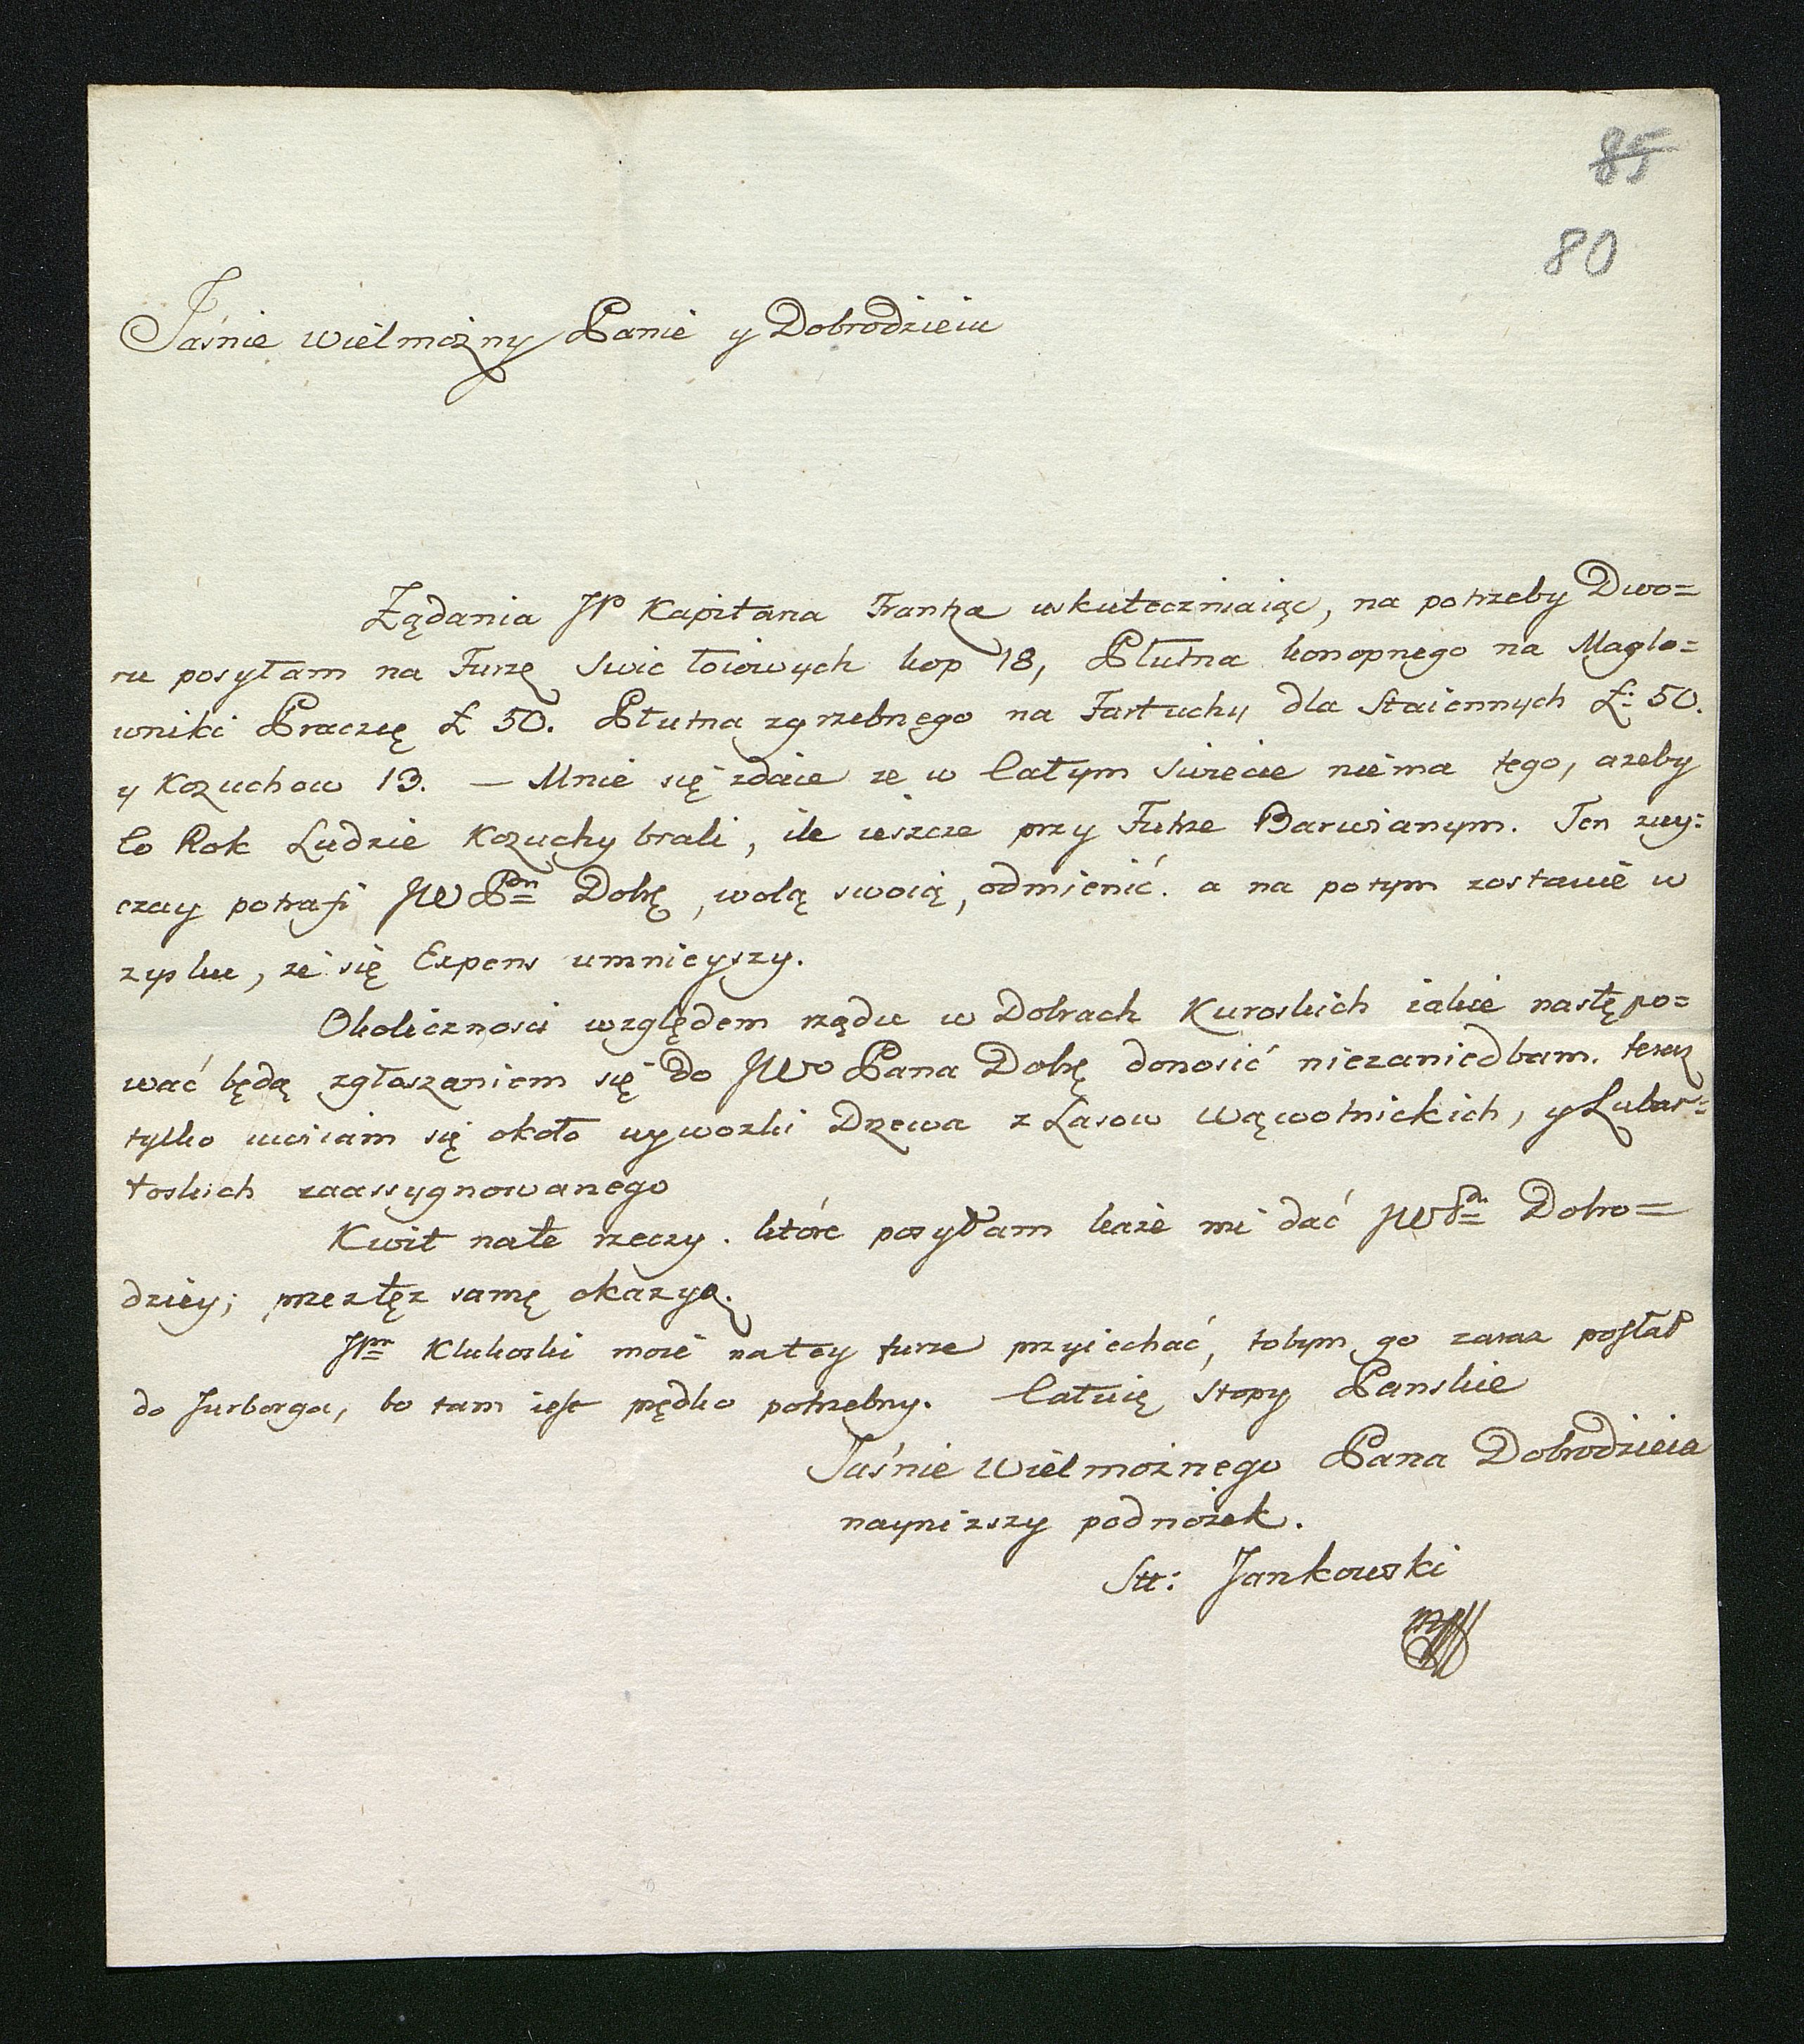 85
80
Jaśnie Wielmożny Panie y Dobrodzieiu
Żądania JP Kapitana Frantza uskuteczniaiąc, na potrzeby Dwo=
ru posyłam na Furzę Swic łoiowych kop 18, Płutna konopnego na Maglo=
wniki Praczię Ł 50. Płutna zgrzebnego na Fartuchy dla Staiennych Ł: 50.
y Kozuchow 13. — Mnie się zdaie ze w Całym Swiecie niema tego, azeby
Co Rok Ludzie Kozuchy brali, ile ieszcze przy Futrze Barwianym. Ten zwy:
czay potrafi JW Pdn Dobę, wolą swoią, odmienić. a na potym zostanie w
zysku, ze się Expens umnieyszy.
Okolicznosci względem rządu w Dobrach Kuroskich iakie nastę po=
wać będą zgłaszaniem się do JWo Pana Dobę donosić niezaniedbam. teraz
tylko uwiiam się około wywozki Drzewa z Lasow Wąwolnickich, y Lubar=
toskich zaassygnowanego
Kwit nate rzeczy. które posyłam każe mi dać JWPdn Dobro=
dziey; przeztęz samę okazyą.
JPn Klukoski może natey furze przyiechać, tobym go zaraz posłał
do Jurborga, bo tam iest prędko potrzebny. Całuię Stopy Panskie
Jaśnie Wielmożnego Pana Dobrodzieia
naynizszy podnożek.
Stt: Jankowski
mpp